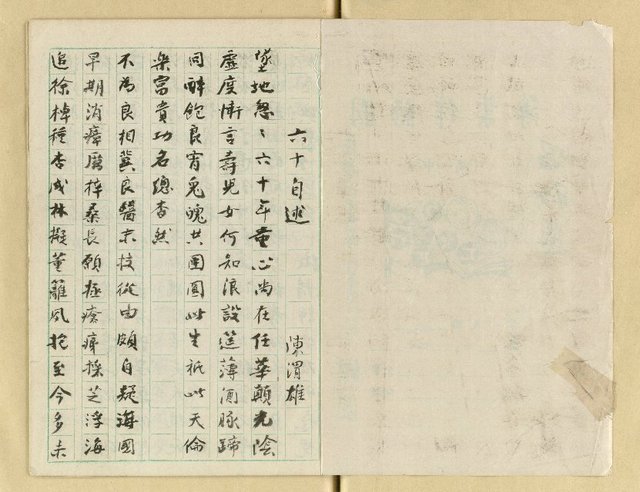 六十自述
陳渭雄
墜地怱〻六十年童心尚在任華顛光陰
虛度慚言壽兒女何知浪設筵薄酒豚蹄
同醉飽良宵兔魄共團圓此生祇此天倫
樂富貴功名總杳然
不為良相冀良醫末技從由頗自疑海國
早期消瘴厲梓桑長願拯瘡痍採芝浮海
追徐棹種杏成林擬董籬夙抱至今多未